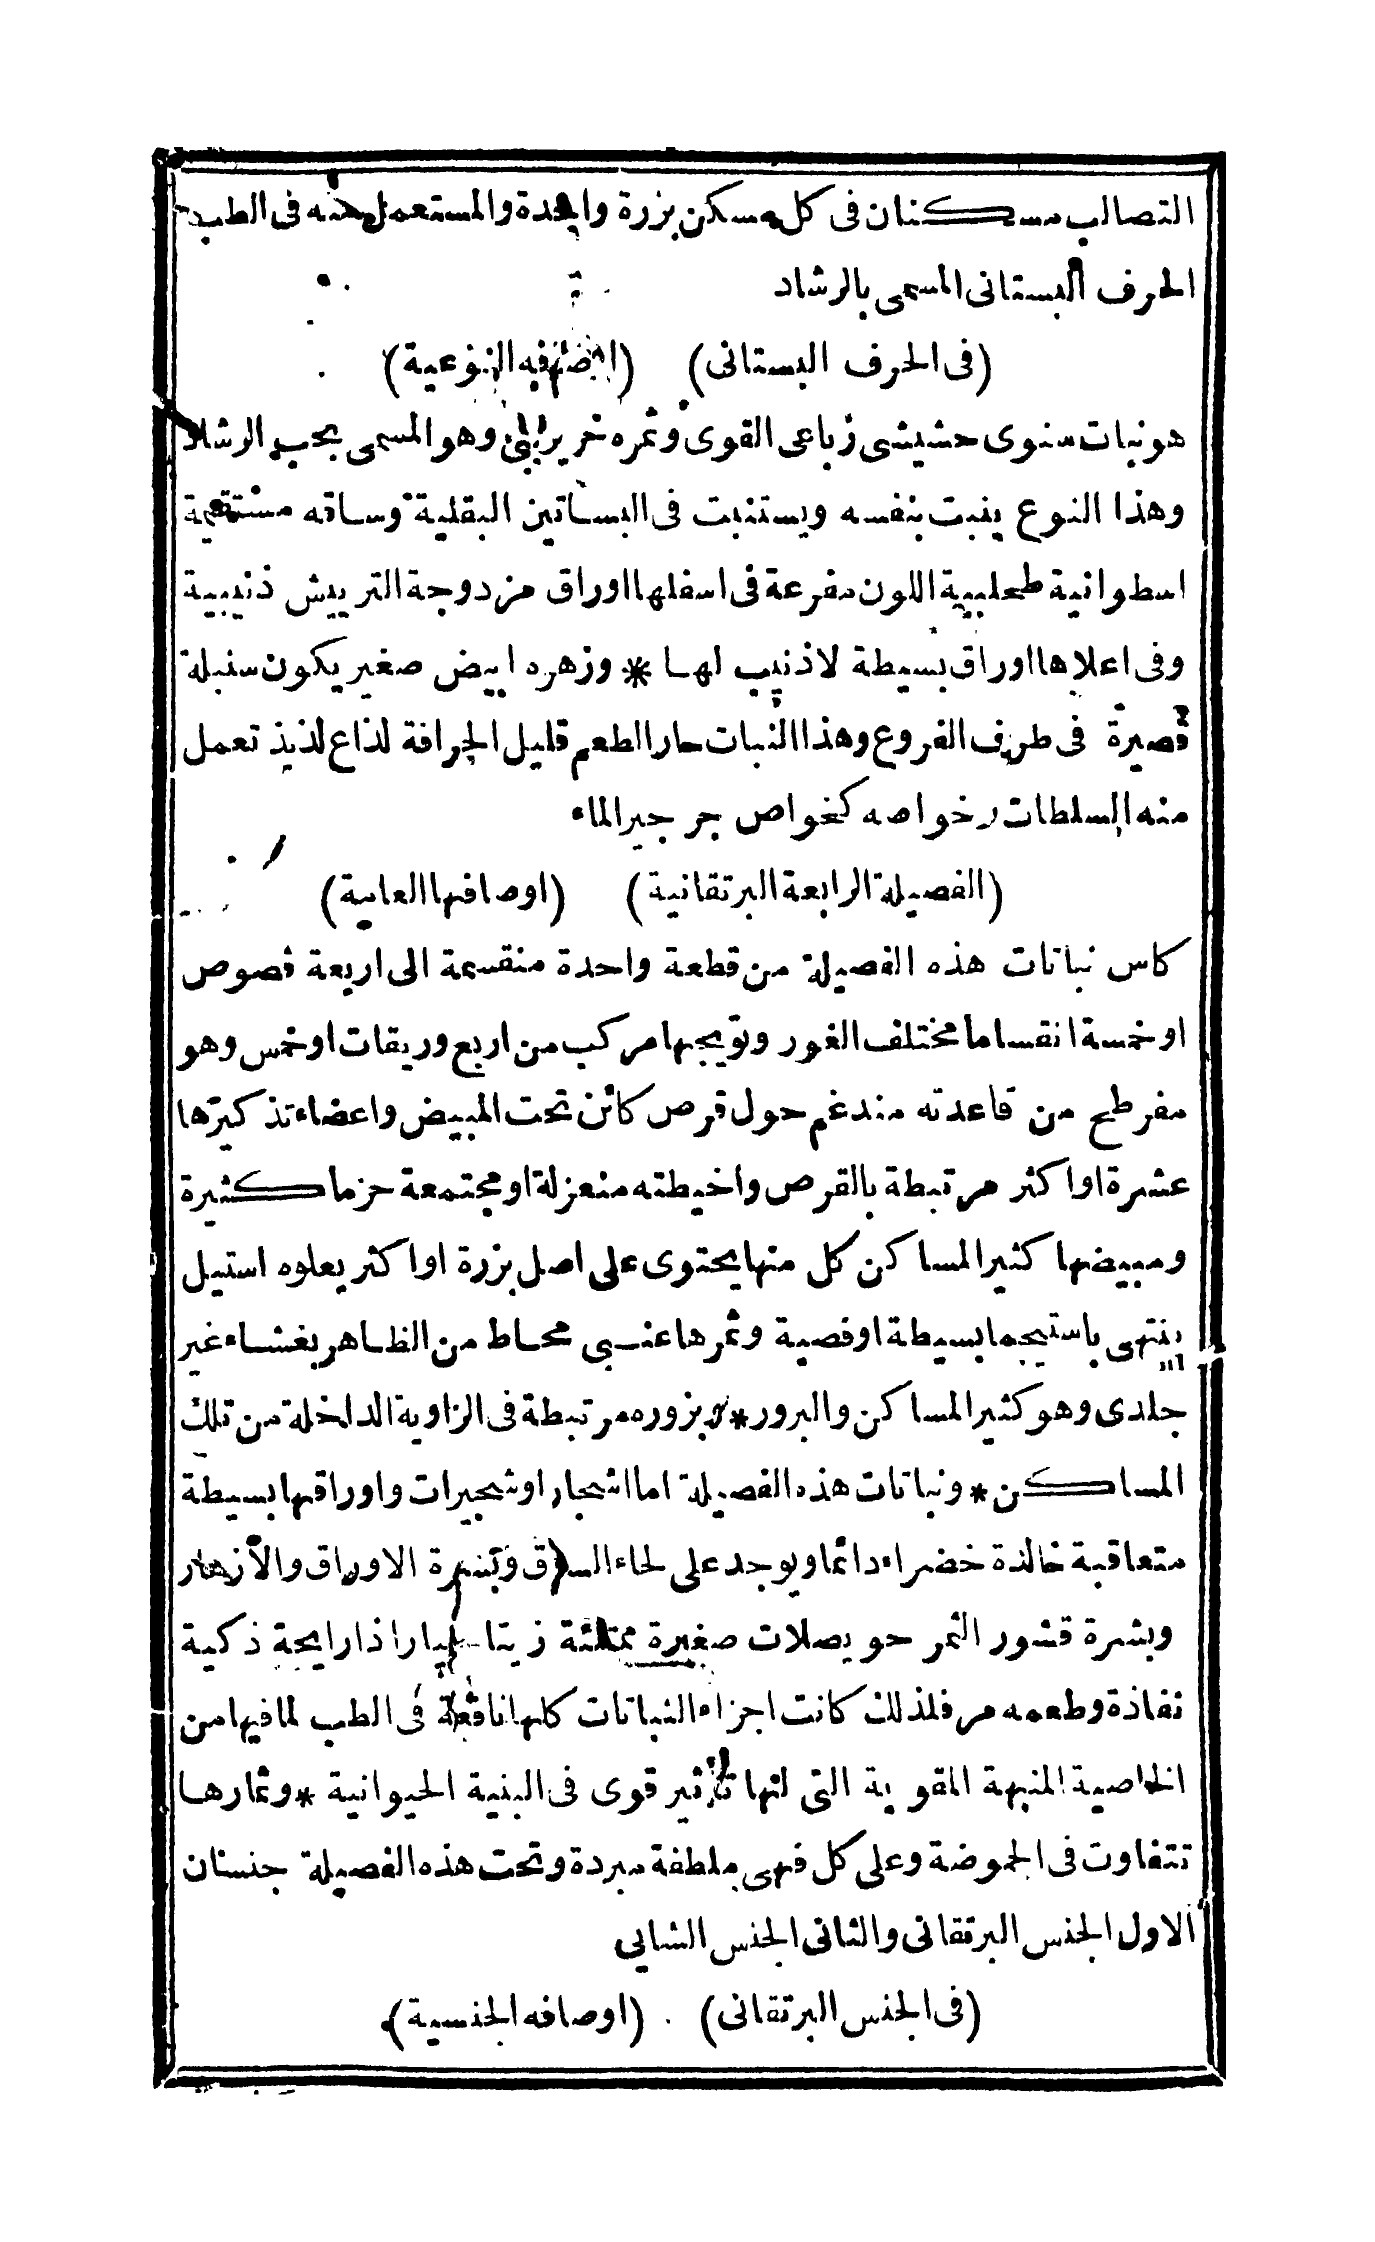 التصالب مسكنان فى كل مسكن بزرة واحدة والمستعمل منه فى الطب
الحرف البستانى المسمى بالرشاد
(فى الحرف البستانى) (اوصافه النوعية)
هو نبات سنوى حشيشى رباعى القوى وثمره خريرابى وهو المسمى بحب الرشاد
وهذا النوع ينبت بنفسه ويستنبت فى البساتين البقلية وساقه مستقيمة
اسطوانية طحلبية اللون مفرعة فى اسفلها اوراق مزدوجة التريش ذنيبية
وفى اعلاها اوراق بسيطة لا ذنيب لها * وزهره ابيض صغير يكون سنبلة
قصيرة فى طرف الفروع وهذا النبات حار الطعم قليل الحرافة لذاع لذيذ تعمل
منه السلطات وخواصه كخواص جرجير الماء
(الفصيلة الرابعة البرتقانية) (اوصافها العامية)
كاس نباتات هذه الفصيلة من قطعة واحدة منقسمة الى اربعة فصوص
او خمسة انقساما مختلف الغور وتويجها مركب من اربع وريقات او خمس وهو
مفرطح من قاعدته مندغم حول قرص كائن تحت المبيض واعضاء تذكيرها
عشرة او اكثر مرتبطة بالقرص واخيطته منعزلة او مجتمعة حزما كثيرة
ومبيضها كثير المساكن كل منها يحتوى على اصل بزرة او اكثر يعلوه استيل
ينتهى باستيجما بسيطة او فصية وثمرها عنبى محاط من الظاهر بغشاء غير
جلدى وهو كثير المساكن والبرور * وبزوره مرتبطة فى الزاوية الداخلة من تلك
المساكن * ونباتات هذه الفصيلة اما اشجار او شجيرات واوراقها بسيطة
متعاقبة خالدة خضراء دائما ويوجد على لحاء الساق وبشرة الاوراق والأزهار
وبشرة قشور الثمر حويصلات صغيرة ممتلئة زيتا طيارا ذا رايحة ذكية
نفاذة وطعمه مر فلذلك كانت اجزاء النباتات كلها نافعة فى الطب لما فيها من
الخاصية المنبهة المقوية التى لها تأثير قوى فى البنية الحيوانية * وثمارها
تتفاوت فى الحموضة وعلى كل فهى ملطفة مبردة وتحت هذه الفصيلة جنسان
الاول الجنس البرتقانى والثانى الجنس الشايى
(فى الجنس البرتقانى) (اوصافه الجنسية)